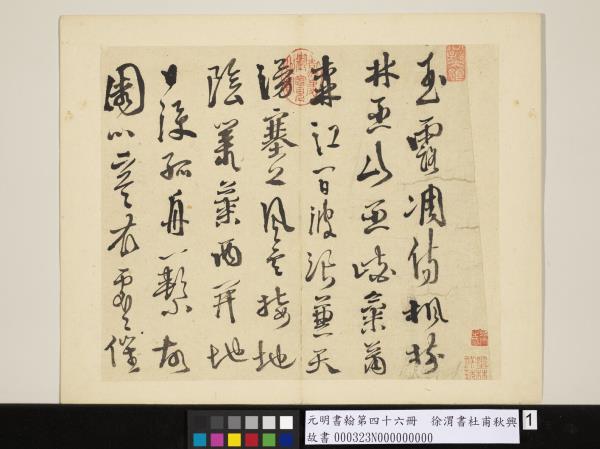 玉露凋傷楓樹
林巫山巫峽氣蕭
森江間波浪兼天
湧塞上風雲接地
陰叢菊兩開他
日淚孤舟一繫故
園心寒衣處處催
元明書翰第四十六冊　徐渭書杜甫秋興
故書000323N000000000
1